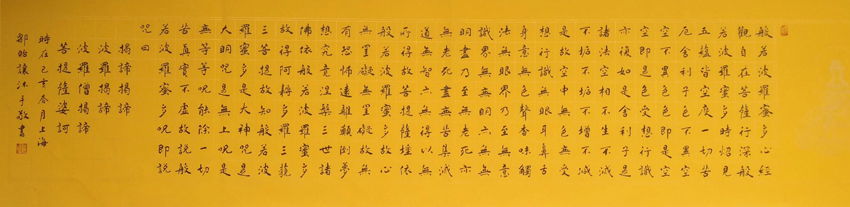 般若波羅蜜多心經
觀自在菩薩行深般
若波羅蜜多時照見
五蘊皆空度一切苦
厄舍利子色不異空
空不異色色即是空
空即是色受想行識
亦復如是舍利子是
諸法空相不生不滅
不垢不淨不增不減
是故空中無色無受
想行識無眼耳鼻舌
身意無色聲香味觸
法無眼界乃至無意
識界無無明亦無無
明盡乃至無老死亦
無老死盡無苦集滅
道無智亦無得以無
所得故菩提薩埵依
般若波羅蜜多故心
無罣礙無罣礙故無
有恐怖遠離顛倒夢
想究竟涅槃三世諸
佛依般若波羅蜜多
故得阿耨多羅三藐
三菩提故知般若波
羅蜜多是大神咒是
大明咒是無上咒是
無等等咒能除一切
苦真實不虛故說般
若波羅蜜多咒即說
咒曰
揭諦揭諦
波羅揭諦
波羅僧揭諦
菩提薩婆訶
時在己亥春月上海
沐手敬書